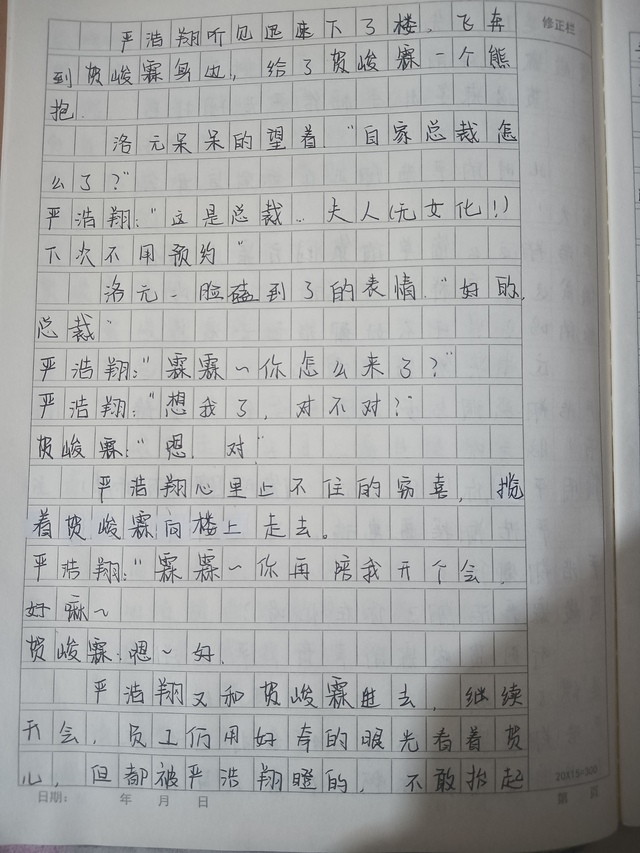 修正栏
严浩翔听见迅速下了楼，飞奔
到贺峻霖身边，给了贺峻霖一个熊
抱.
洛元呆呆的望着“自家总裁怎
么了？”
严浩翔：“这是总裁…夫人(无文化!)
下次不用预约”
洛元一脸磕到了的表情“好的，
总裁”
严浩翔：“霖霖～你怎么来了？”
严浩翔：“想我了，对不对？”
贺峻霖：“嗯．对”
严浩翔心里止不住的窃喜，揽
着贺峻霖向楼上走去。
严浩翔：“霖霖～你再陪我开个会，
好嘛～
贺峻霖：嗯～好.
严浩翔又和贺峻霖进去，继续
开会，员工们用好奇的眼光看着贺
儿，但都被严浩翔瞪的，不敢抬起
20X15=300
日期： 年 月 日 第 页